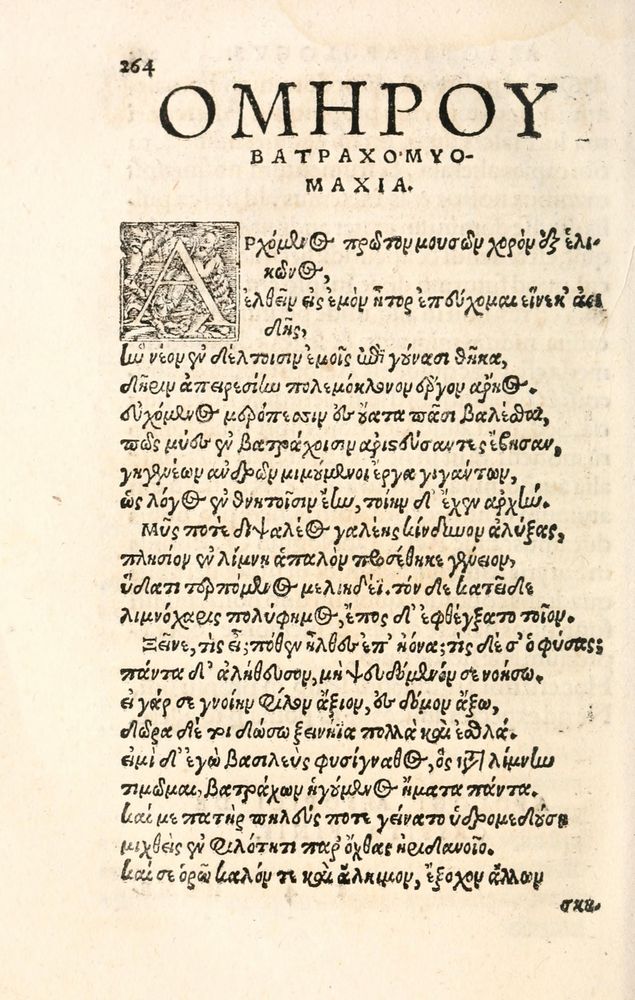 264
ΟΜΗΡΟΥ
ΒΑΤΡΑΧΟΜΥΟ-
ΜΑΧΙΑ.
ΑΡχόμενος πρῶτον μουσῶν χορὸν ἐξ ἑλι-
κῶνος,
ἐλθεῖν εἰς ἐμὸν ἦτορ ἐπεύχομαι εἵνεκ' ἀοι
δῆς,
ἣν νέον ἐν δέλτοισιν ἐμοῖς ἐπὶ γούνασι θῆκα,
δῆριν ἀπειρεσίην πολεμόκλονον ἔργον ἄρηος.
εὐχόμενος μερόπεσσιν ἐς οὔατα πᾶσι βαλέσθαι,
πῶς μύες ἐν βατράχοισιν ἀριστεύσαντες ἔβησαν,
γηγενέων ἀνδρῶν μιμούμενοι ἔργα γιγάντων,
ὡς λόγος ἐν θνητοῖσιν ἔην, τοίην δ' ἔχεν ἀρχήν.
Μῦς ποτε διψαλέος γαλέης κίνδυνον ἀλύξας,
πλησίον ἐν λίμνῃ ἁπαλὸν προσέθηκε γένειον,
ὕδατι τερπόμενος μελιηδέϊ. τὸν δὲ κατεῖδε
λιμνόχαρις πολύφημος, ἔπος δ' ἐφθέγξατο τοῖον.
Ξεῖνε, τίς εἶ; πόθεν ἦλθες ἐπ' ἠόνα; τίς δέ σ' ὁ φύσας;
πάντα δ' ἀλήθευσον, μὴ ψευδόμενόν σε νοήσω.
εἰ γάρ σε γνοίην φίλον ἄξιον, ἐς δόμον ἄξω,
δῶρα δέ τοι δώσω ξεινήϊα πολλὰ καὶ ἐσθλά.
εἰμὶ δ' ἐγὼ βασιλεὺς φυσίγναθος, ὃς κατὰ λίμνην
τιμῶμαι, βατράχων ἡγούμενος ἤματα πάντα.
καί με πατὴρ πηλεύς ποτε γείνατο ὑδρομεδούσῃ
μιχθεὶς ἐν φιλότητι παρ' ὄχθας ἠριδανοῖο.
καί σε ὁρῶ καλόν τε καὶ ἄλκιμον, ἔξοχον ἄλλων
σκη-